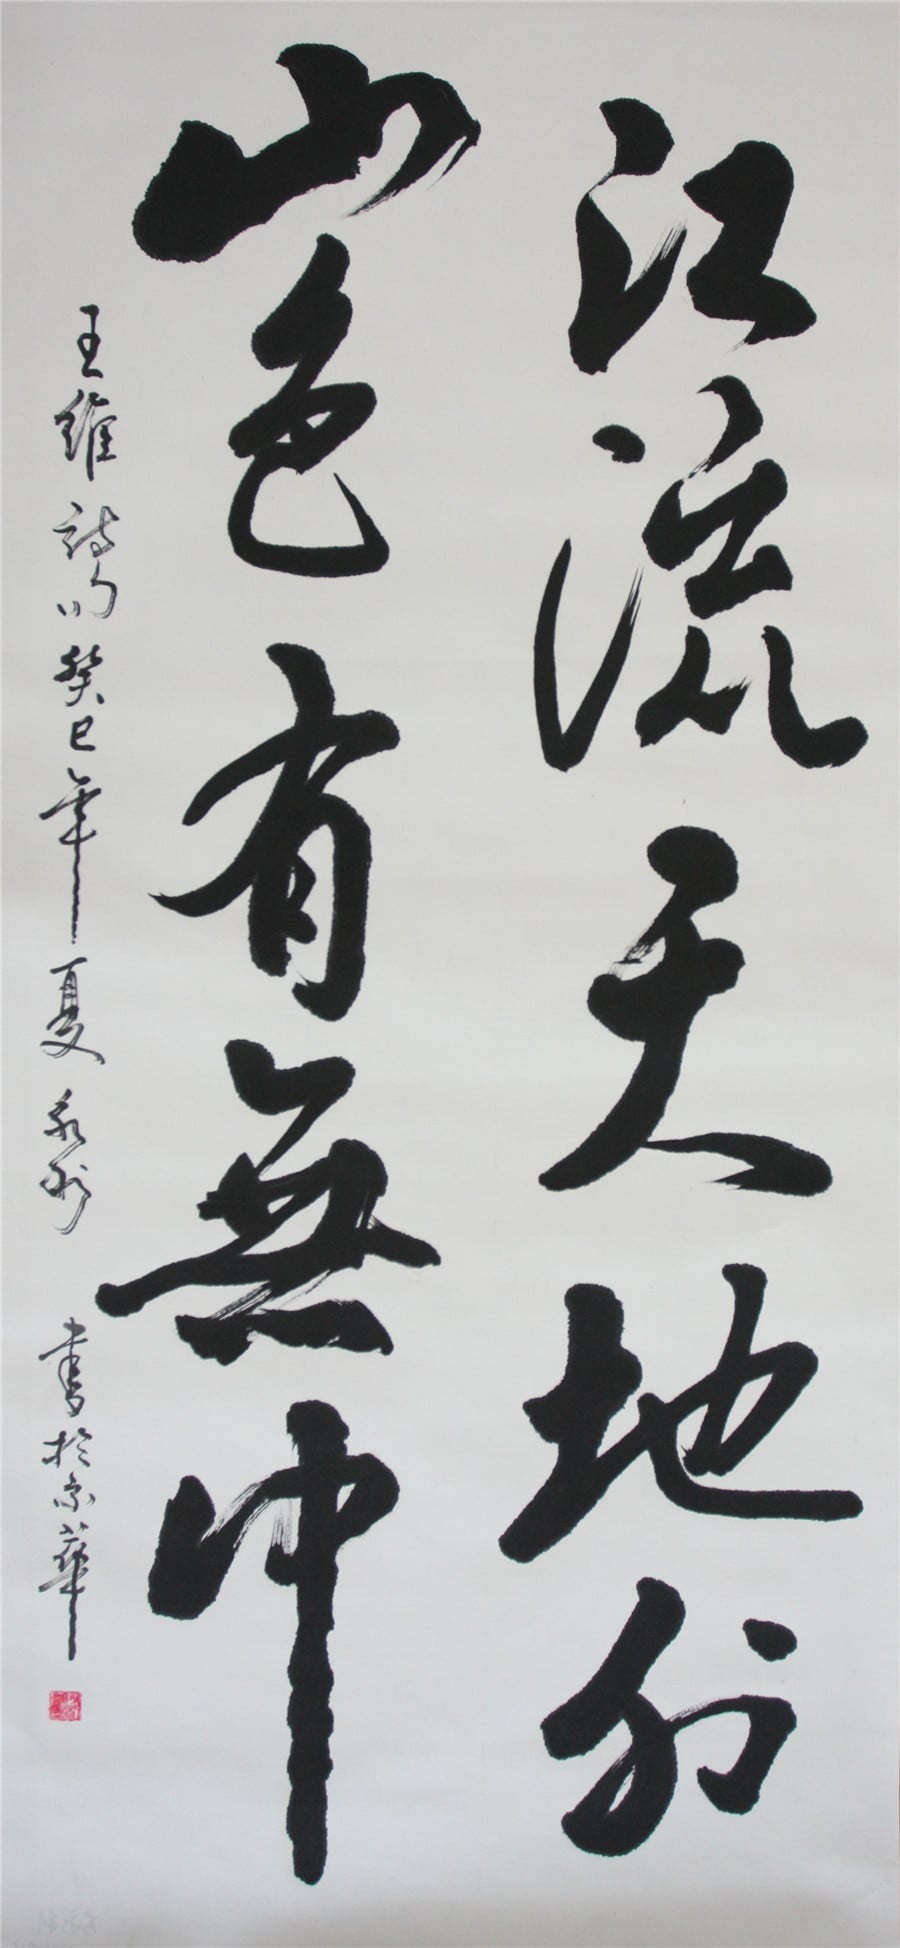 江流天地外
山色有無中
王維詩句癸巳年夏永利 書於京華